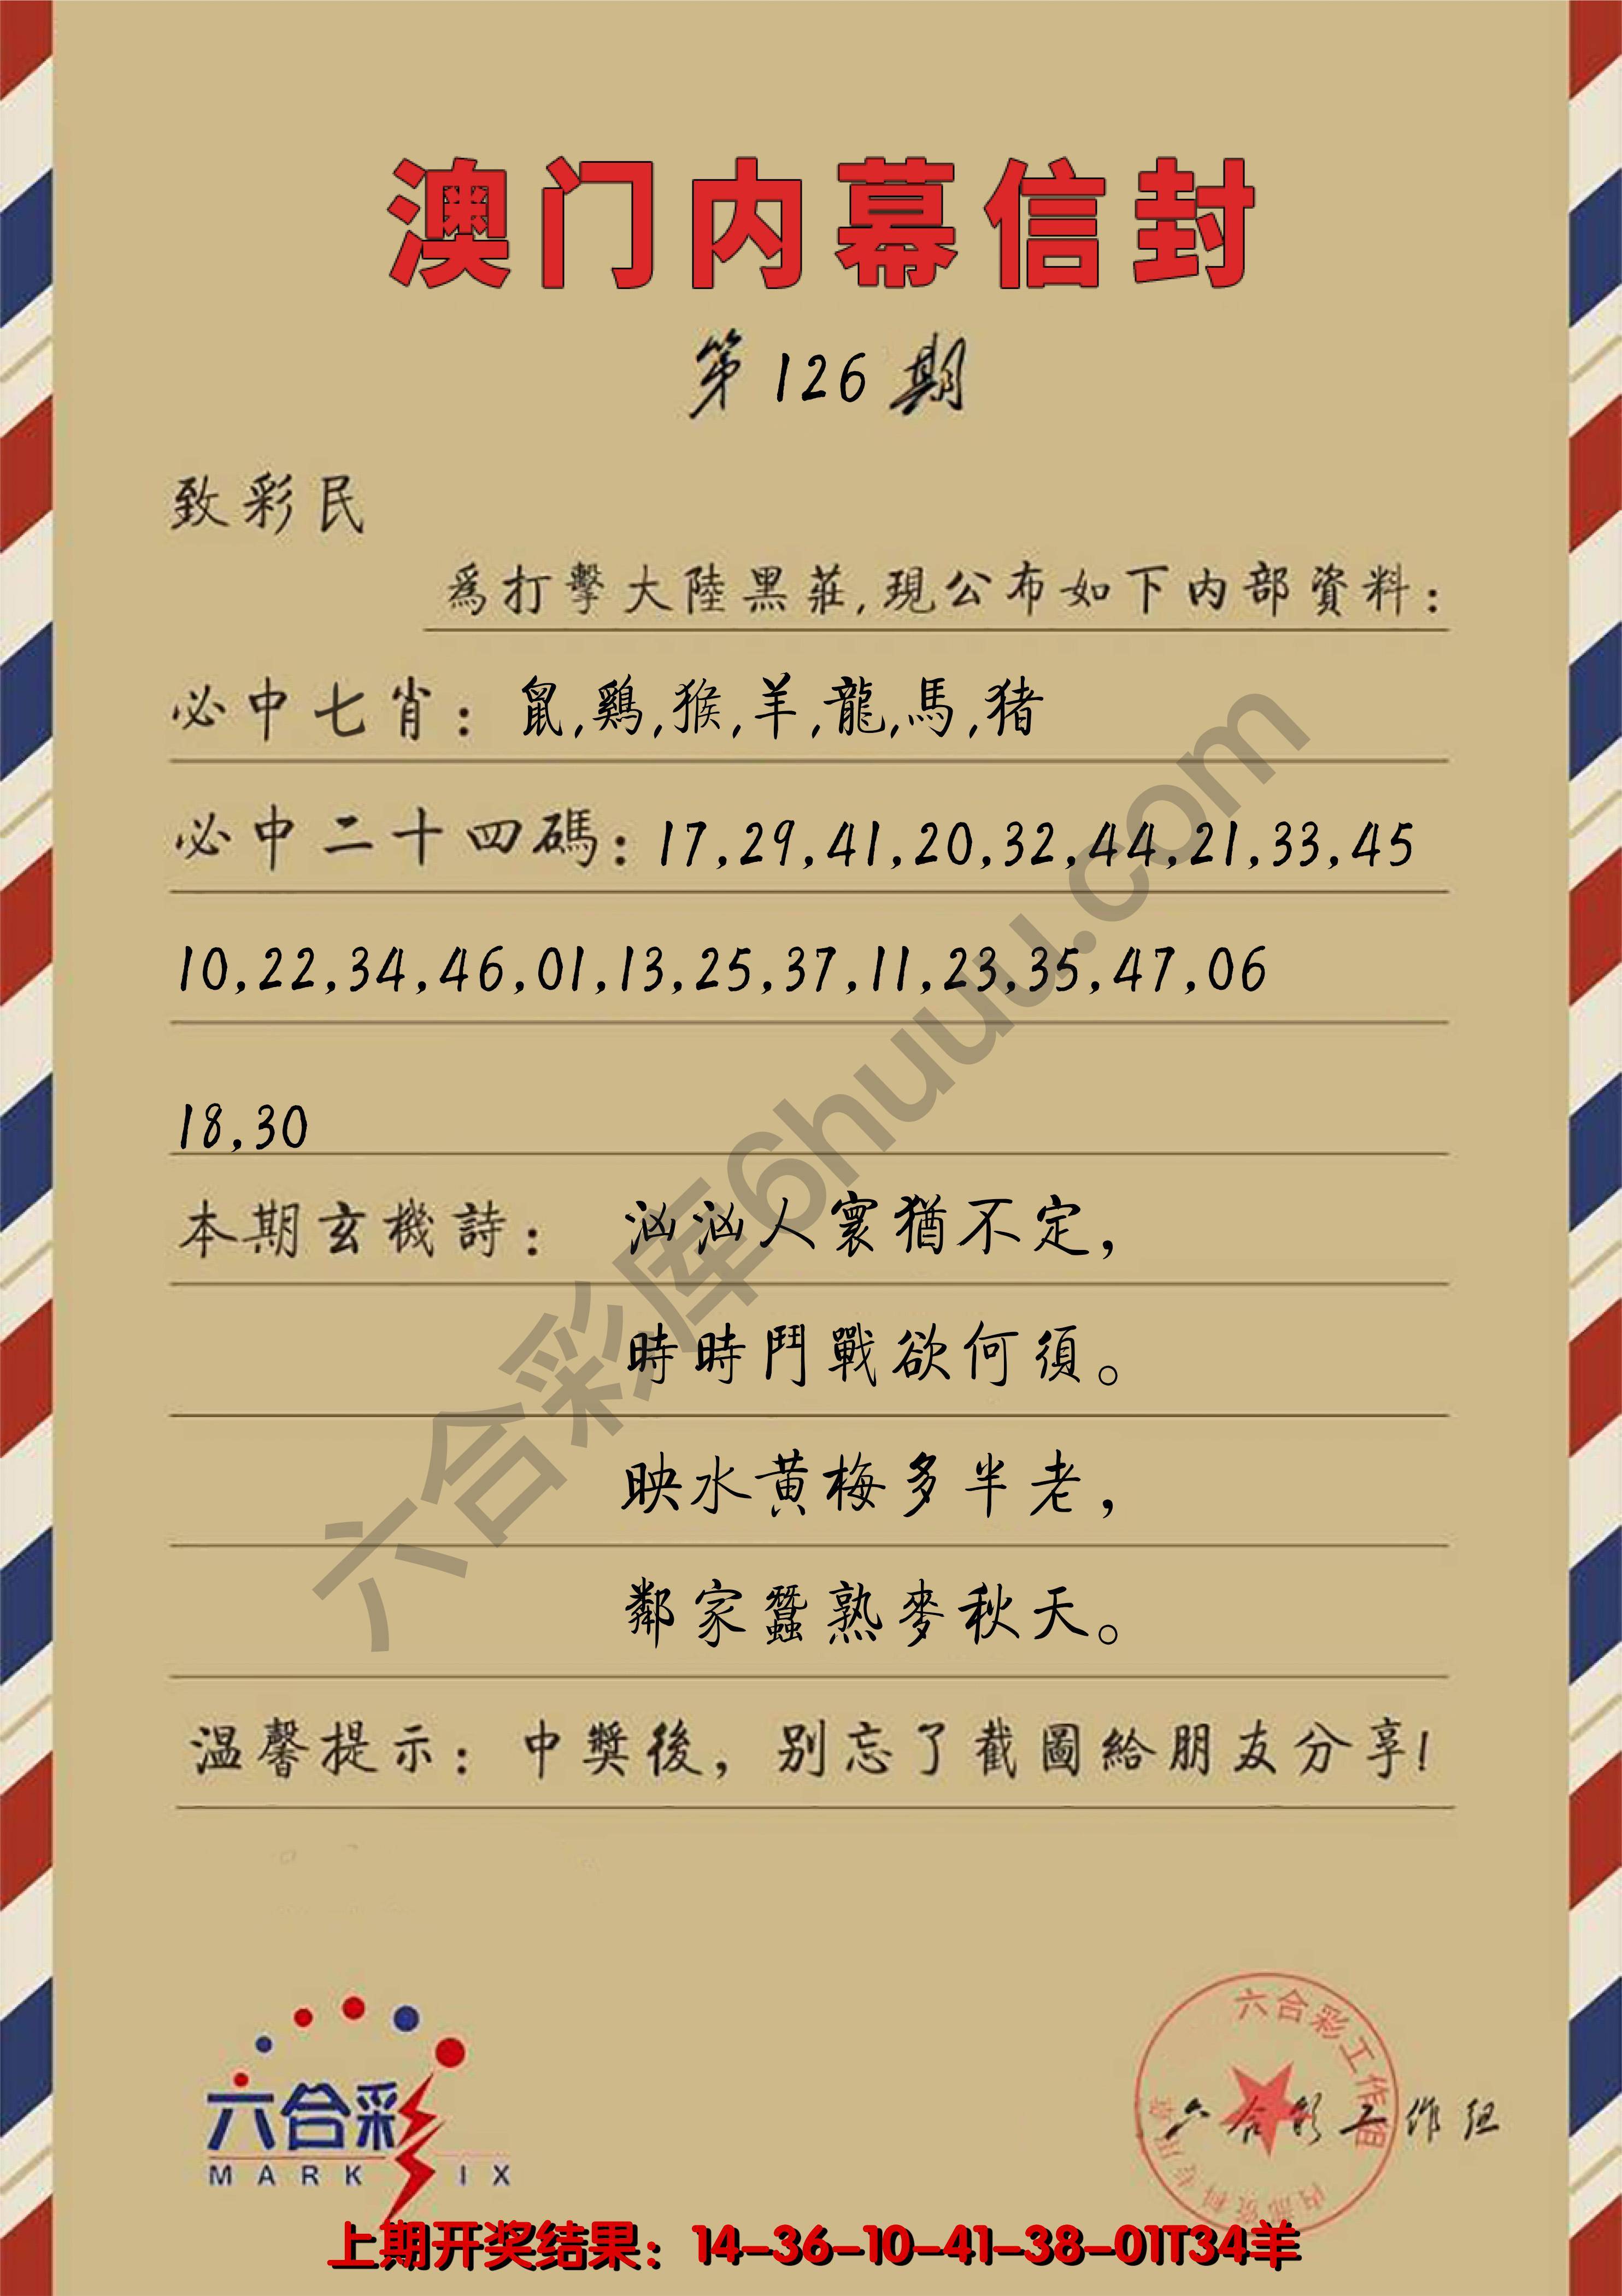 澳门内幕信封
第126期
致彩民
為打擊大陸黑莊,現公布如下内部資料:
必中七肖: 鼠,鷄,猴,羊,龍,馬,猪
必中二十四碼: 17,29,41,20,32,44,21,33,45
10,22,34,46,01,13,25,37,11,23,35,47,06
18,30
本期玄機詩: 汹汹人寰猶不定,
時時鬥戰欲何須。
映水黄梅多半老,
鄰家蠶熟麥秋天。
温馨提示: 中獎後, 别忘了截圖給朋友分享!
六合彩库6huuu.com
六合彩
MARK IX
六合彩工作组
内部资料专用章
六合彩工作组
上期开奖结果: 14-36-10-41-38-01T34羊